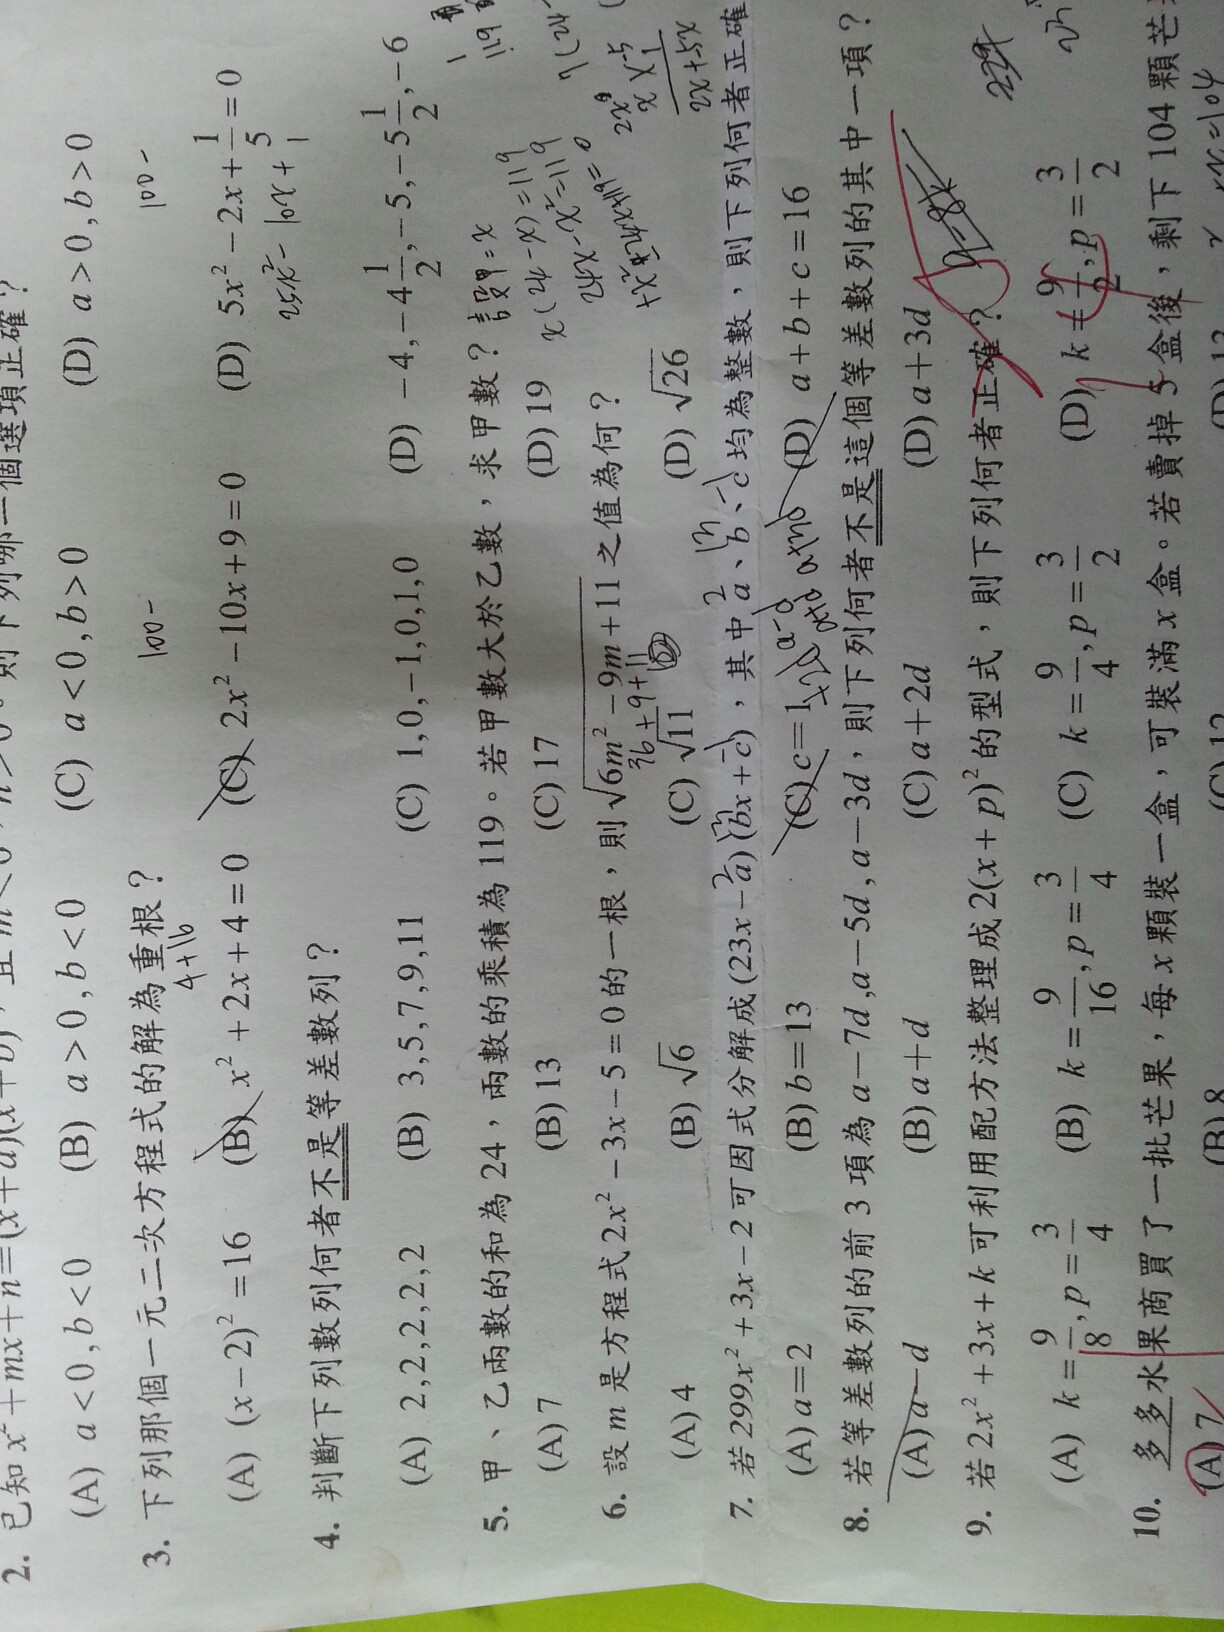 2. 已知 x² + mx + n = (x + a)(x + b)，且 m < 0，n > 0。則下列哪一個選項正確？
(A) a < 0, b < 0 (B) a > 0, b < 0 (C) a < 0, b > 0 (D) a > 0, b > 0
3. 下列那個一元二次方程式的解為重根？
4+16 100- 100-
(A) (x − 2)² = 16 (B) x² + 2x + 4 = 0 (C) 2x² − 10x + 9 = 0 (D) 5x² − 2x + 1/5 = 0
25x² − 10x + 1
4. 判斷下列數列何者不是等差數列？
(A) 2, 2, 2, 2, 2, 2 (B) 3, 5, 7, 9, 11 (C) 1, 0, −1, 0, 1, 0 (D) −4, −4 1/2, −5, −5 1/2, −6
5. 甲、乙兩數的和為 24，兩數的乘積為 119。若甲數大於乙數，求甲數？
設甲=x
(A) 7 (B) 13 (C) 17 (D) 19
x(24−x)=119
24x−x²=119
6. 設 m 是方程式 2x² − 3x − 5 = 0 的一根，則 √(6m² − 9m + 11) 之值為何？
(A) 4 (B) √6 (C) √11 (D) √26
7. 若 299x² + 3x − 2 可因式分解成 (23x − a)(bx + c)，其中 a、b、c 均為整數，則下列何者正確
(A) a = 2 (B) b = 13 (C) c = 1 (D) a + b + c = 16
8. 若等差數列的前 3 項為 a − 7d, a − 5d, a − 3d，則下列何者不是這個等差數列的其中一項？
(A) a − d (B) a + d (C) a + 2d (D) a + 3d
9. 若 2x² + 3x + k 可利用配方法整理成 2(x + p)² 的型式，則下列何者正確？
(A) k = 9/8, p = 3/4 (B) k = 9/16, p = 3/4 (C) k = 9/4, p = 3/2 (D) k = 9/2, p = 3/2
10. 多多水果商買了一批芒果，每 x 顆裝一盒，可裝滿 x 盒。若賣掉 5 盒後，剩下 104 顆芒
(A) 7 (B) 8 (C) 12 (D) 13